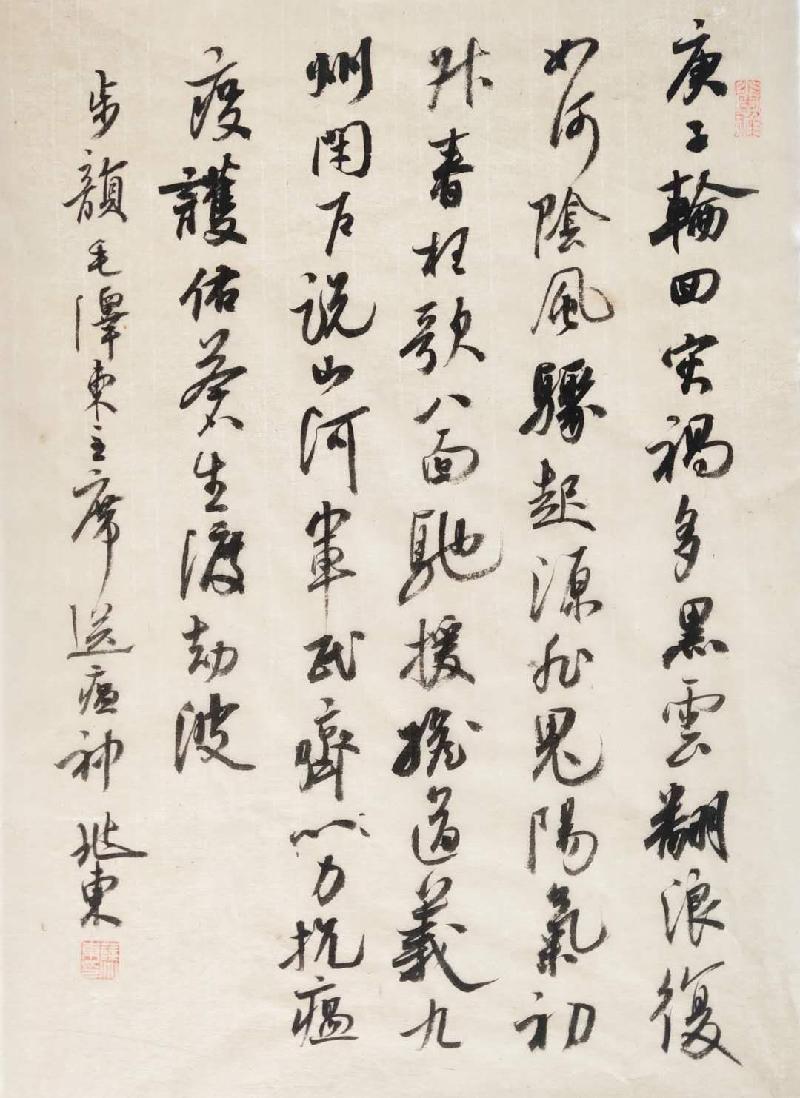 庚子輪回灾禍多黑雲翻浪復
如何陰風驟起源非鬼陽氣初
春枉歌八面馳援擔道義九
州閉說山河軍民齊心力抗瘟
疫護佑蒼生渡劫波
步韻毛澤東主席送瘟神 東